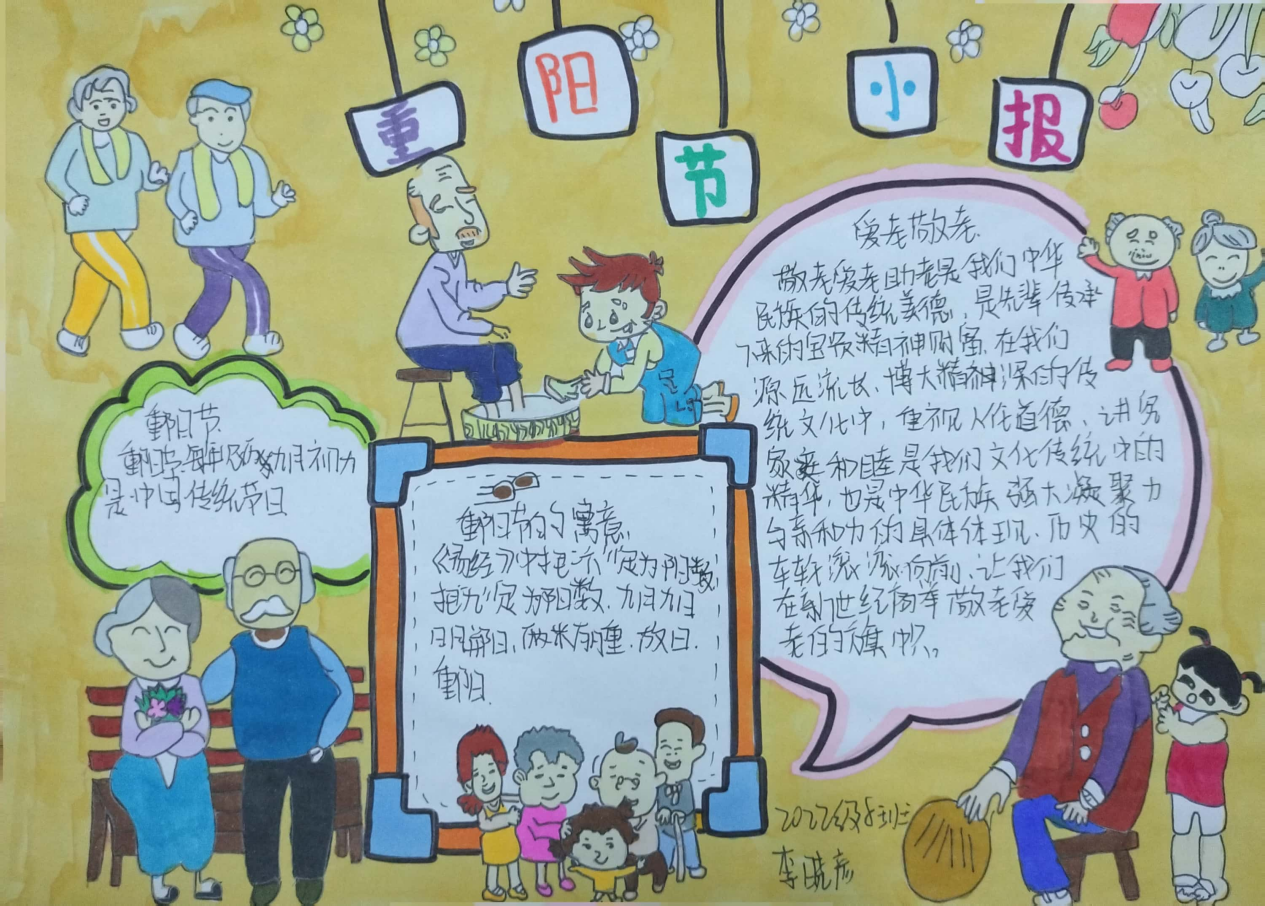 重阳节小报
重阳节
重阳节，每年农历九月初九
是中国传统节日
重阳节的寓意
《易经》中把"六"定为阴数
把"九"定为阳数，九月九日
日月并阳，两九相重，故曰
重阳
爱老敬老
敬老爱老助老是我们中华
民族的传统美德，是先辈传承
下来的宝贵精神财富，在我们
源远流长、博大精神深的传
统文化中，重视人伦道德、讲究
家庭和睦是我们文化传统中的
精华，也是中华民族强大凝聚力
与亲和力的具体体现、历史的
车轮滚滚向前，让我们
在新世纪高举敬老爱
老的旗帜。
2022级8班
李晓彦